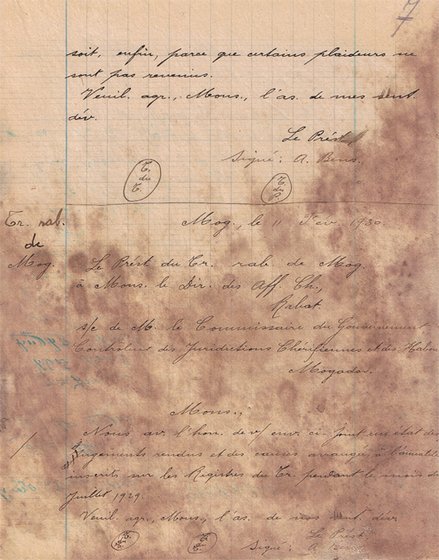 7
soit, enfin, parce que certains plaideurs ne
sont pas revenus.
Veuil. agr., Mons., l'as. de mes sent.
dév.
Le Prést
Signé: A. Bens
T. du T.
T. du T.
Tr. rab.
de
Mog.
Mog, le 11 Fév. 1930
Le Prést du Tr. rab. de Mog.
à Mons. le Dir. des Aff. Ch.,
Rabat
s/c de M. le Commissaire du Gouvernement
Contrôleur des Juridictions Chérifiennes et des
Mogador.
Mons.,
Nous av. l'hon. de v/ env. ci-joint un état des
jugements rendus et des causes arrangées à l'amiable
inscrits sur les Registres du Tr. pendant le mois de
Juillet 1929.
Veuil. agr., Mons., l'as. de nos sent. dév.
Le Prést
Signé: